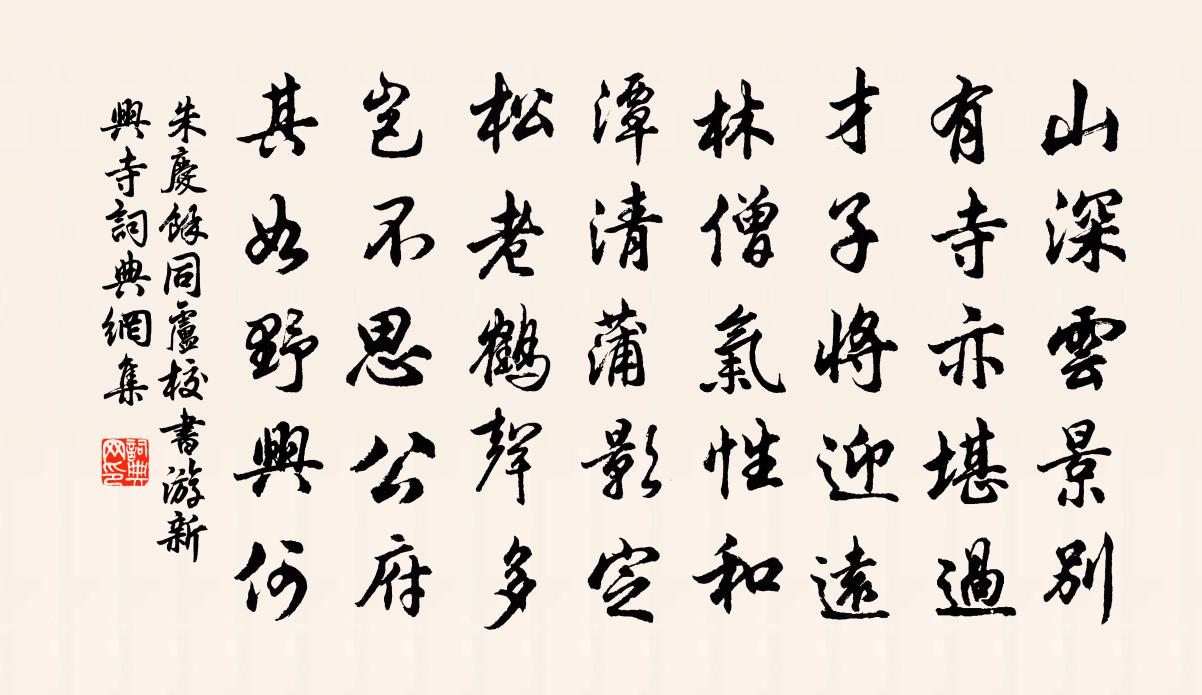 山深雲景別
有寺亦堪過
才子將迎遠
林僧氣性和
潭清蒲影定
松老鶴聲多
豈不思公府
其如野興何
朱慶餘同盧校書游新
興寺詞典網集
詞典
网印